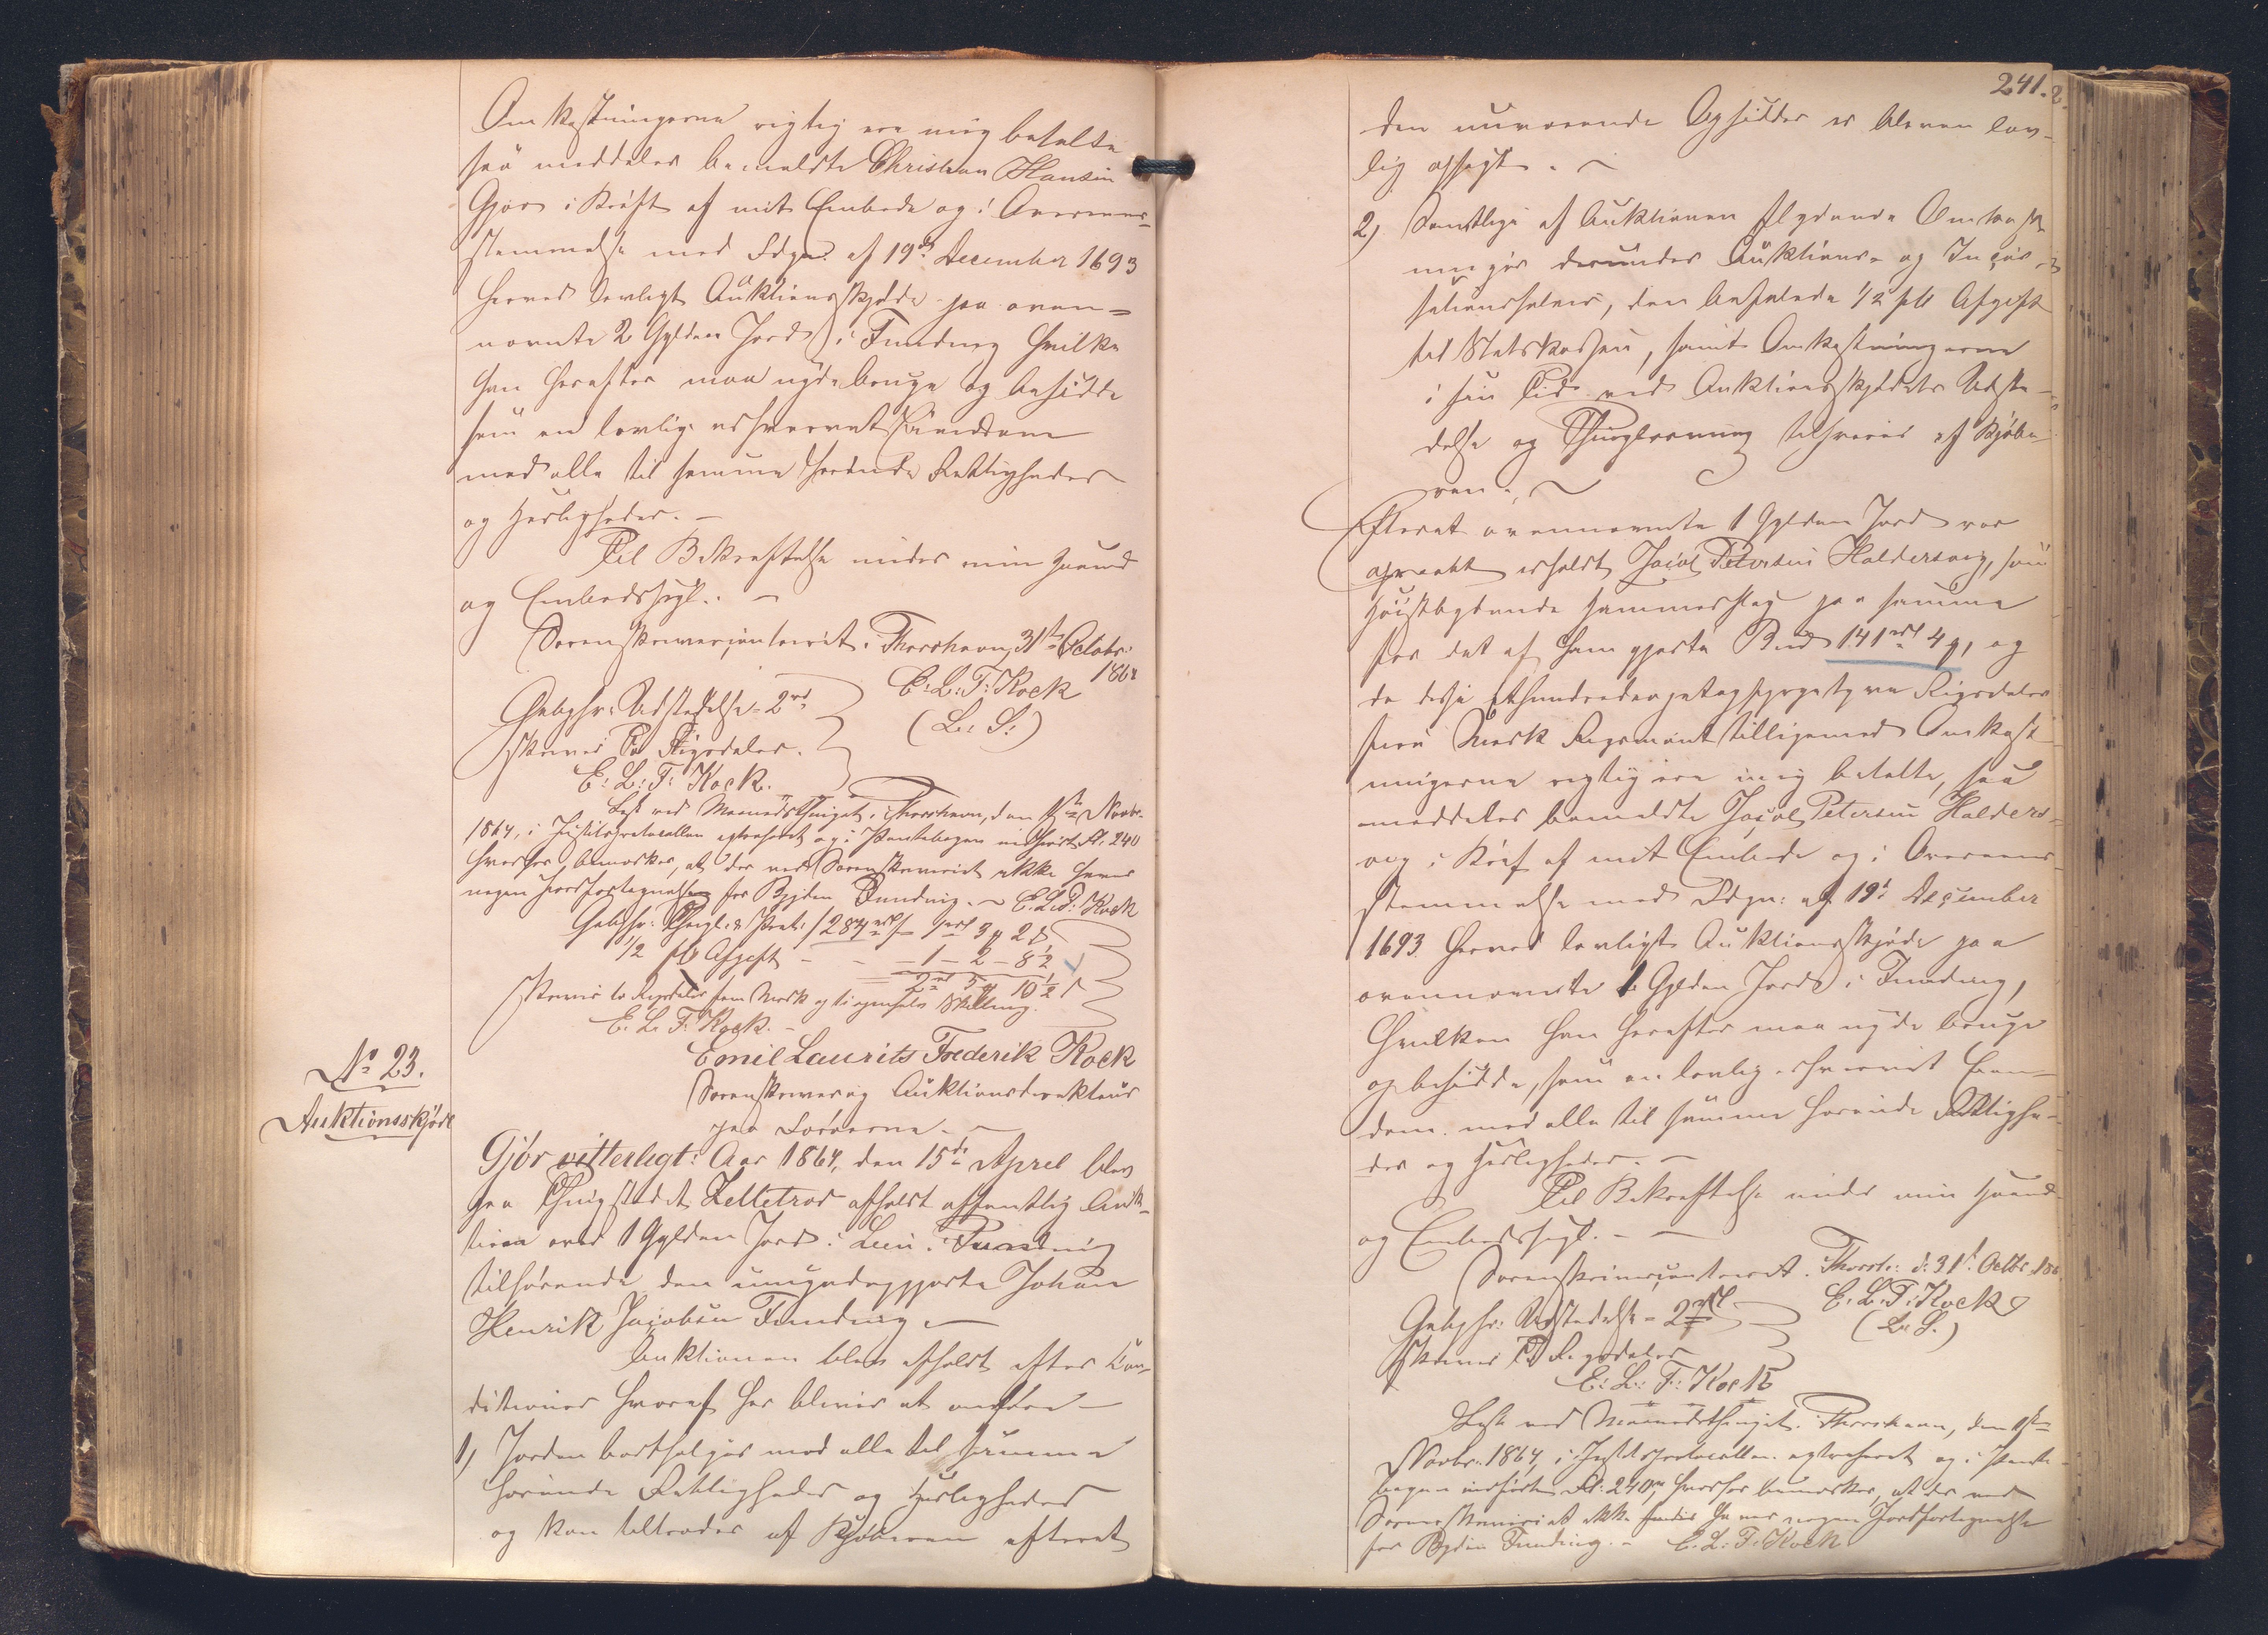 Omkostningerne rigtig ere mig betalte
saa meddeles bemeldte Christian Hansen
Gjov i Kraft af mit Embede og i Overeens-
stemmelse med Fdgn. af 19de December 1693
herved lovligt Auktionsskjøde paa oven=
nævnte 2 Gylden Jord i Funding hvilke
han herefter maa nyde bruge og besidde
som en lovlig erhvervet Eiendom
med alle til samme hørende Rettigheder
og Herligheder. –
Til Bekræftelse under min Haand
og Embedssegl. –
Sorenskrivercontoiret i Thorshavn, 31te Octobr:
1864
E: L: F: Kock
(L: S:)
Gebyhr: Udstedelse - 2rd
skriver To Rigsdaler.
E: L: F: Kock.
Læst ved Maanedsthinget i Thorshavn, den 1ste Novbr.
1864, i Justitsprotocollen extraheret og i Pantebogen indført Fol. 240
hvorhos bemærkes, at der ved Sorenskriveriet ikke haves
nogen Jordfortegnelse for Bygden Funding. – E. L. F. Kock
Gebyhr: Thingl: & Prot: /287rd/ – 1rd 3 ℳ 2 ß
1/2 pCt Afgift - - - 1 - 2 - 8 1/2
2rd 5 ℳ 10 1/2 ß
skriver to Rigsdaler fem Mark og ti en halv Skilling.
E. L. F. Kock. –
No 23.
Auktionsskjøde
Emil Laurits Frederik Kock
Sorenskriver og Auktionsdirekteur
paa Færøerne. –
Gjør vitterligt: Aar 1864, den 15de April blev
paa Thingstedet Zelletrod afholdt offentlig Auk-
tion over 1 Gylden Jord i Funding
tilhørende den umyndiggjorte Johan
Henrik Jacobsen Funding. –
Auktionen blev afholdt efter Con-
ditioner hvoraf her bliver at anføre –
1) Jorden bortsælges med alle til samme
hørende Rettigheder og Herligheder
og kan tiltrædes af Kjøberen efterat
241.
den nuværende Opsidder er bleven lov-
lig opsagt. –
2) Samtlige af Auktionen flydende Omkost-
ninger derunder Auktions- og Incas-
sationssalair, den befalede 1/2 pCt Afgift
til Statskassen, samt Omkostningerne
i sin Tid ved Auktionsskjødets Udste-
delse og Thinglæsning tilsvares af Kjøbe-
ren. –
Efterat ovennævnte 1 Gylden Jord var
opraabt erholdt Jacob Petersen Haldersvig, som
høistbydende Hammerslag paa samme
for det af ham gjorte Bud 141rd 4 ℳ, og
da disse Ethundrede et og fyrgetyve Rigsdaler
fire Mark Rigsmønt tilligemed Omkost-
ningerne rigtig ere mig betalte, saa
meddeles bemeldte Jacob Petersen Halders-
vig i Kraf af mit Embede og i Overeens-
stemmelse med Fdgn: af 19de December
1693 herved lovligt Auktionsskjøde paa
ovennævnte 1 Gylden Jord i Funding,
hvilken han herefter maa nyde bruge
og besidde, som en lovlig erhvervet Eien-
dom med alle til samme hørende Rettighe-
der og Herligheder. –
Til Bekræftelse under min Haand
og Embedssegl. –
Sorenskrivercontoiret i Thorsh: d: 31te Octbr 186
E: L: F: Kock
(L: S.)
Gebyhr: Udstedelse - 2rd
skriver To Rigsdaler
E: L: F: Kock
Læst ved Maanedsthinget i Thorshavn, den 1ste
Novbr. 1864, i Justitsprotocollen extraheret og i Pante-
bogen indført Fol: 240, hvorhos bemærkes, at der ved
Sorenskriveriet ikke haves nogen Jordfortegnelse
for Bygden Funding. – E. L. F. Kock